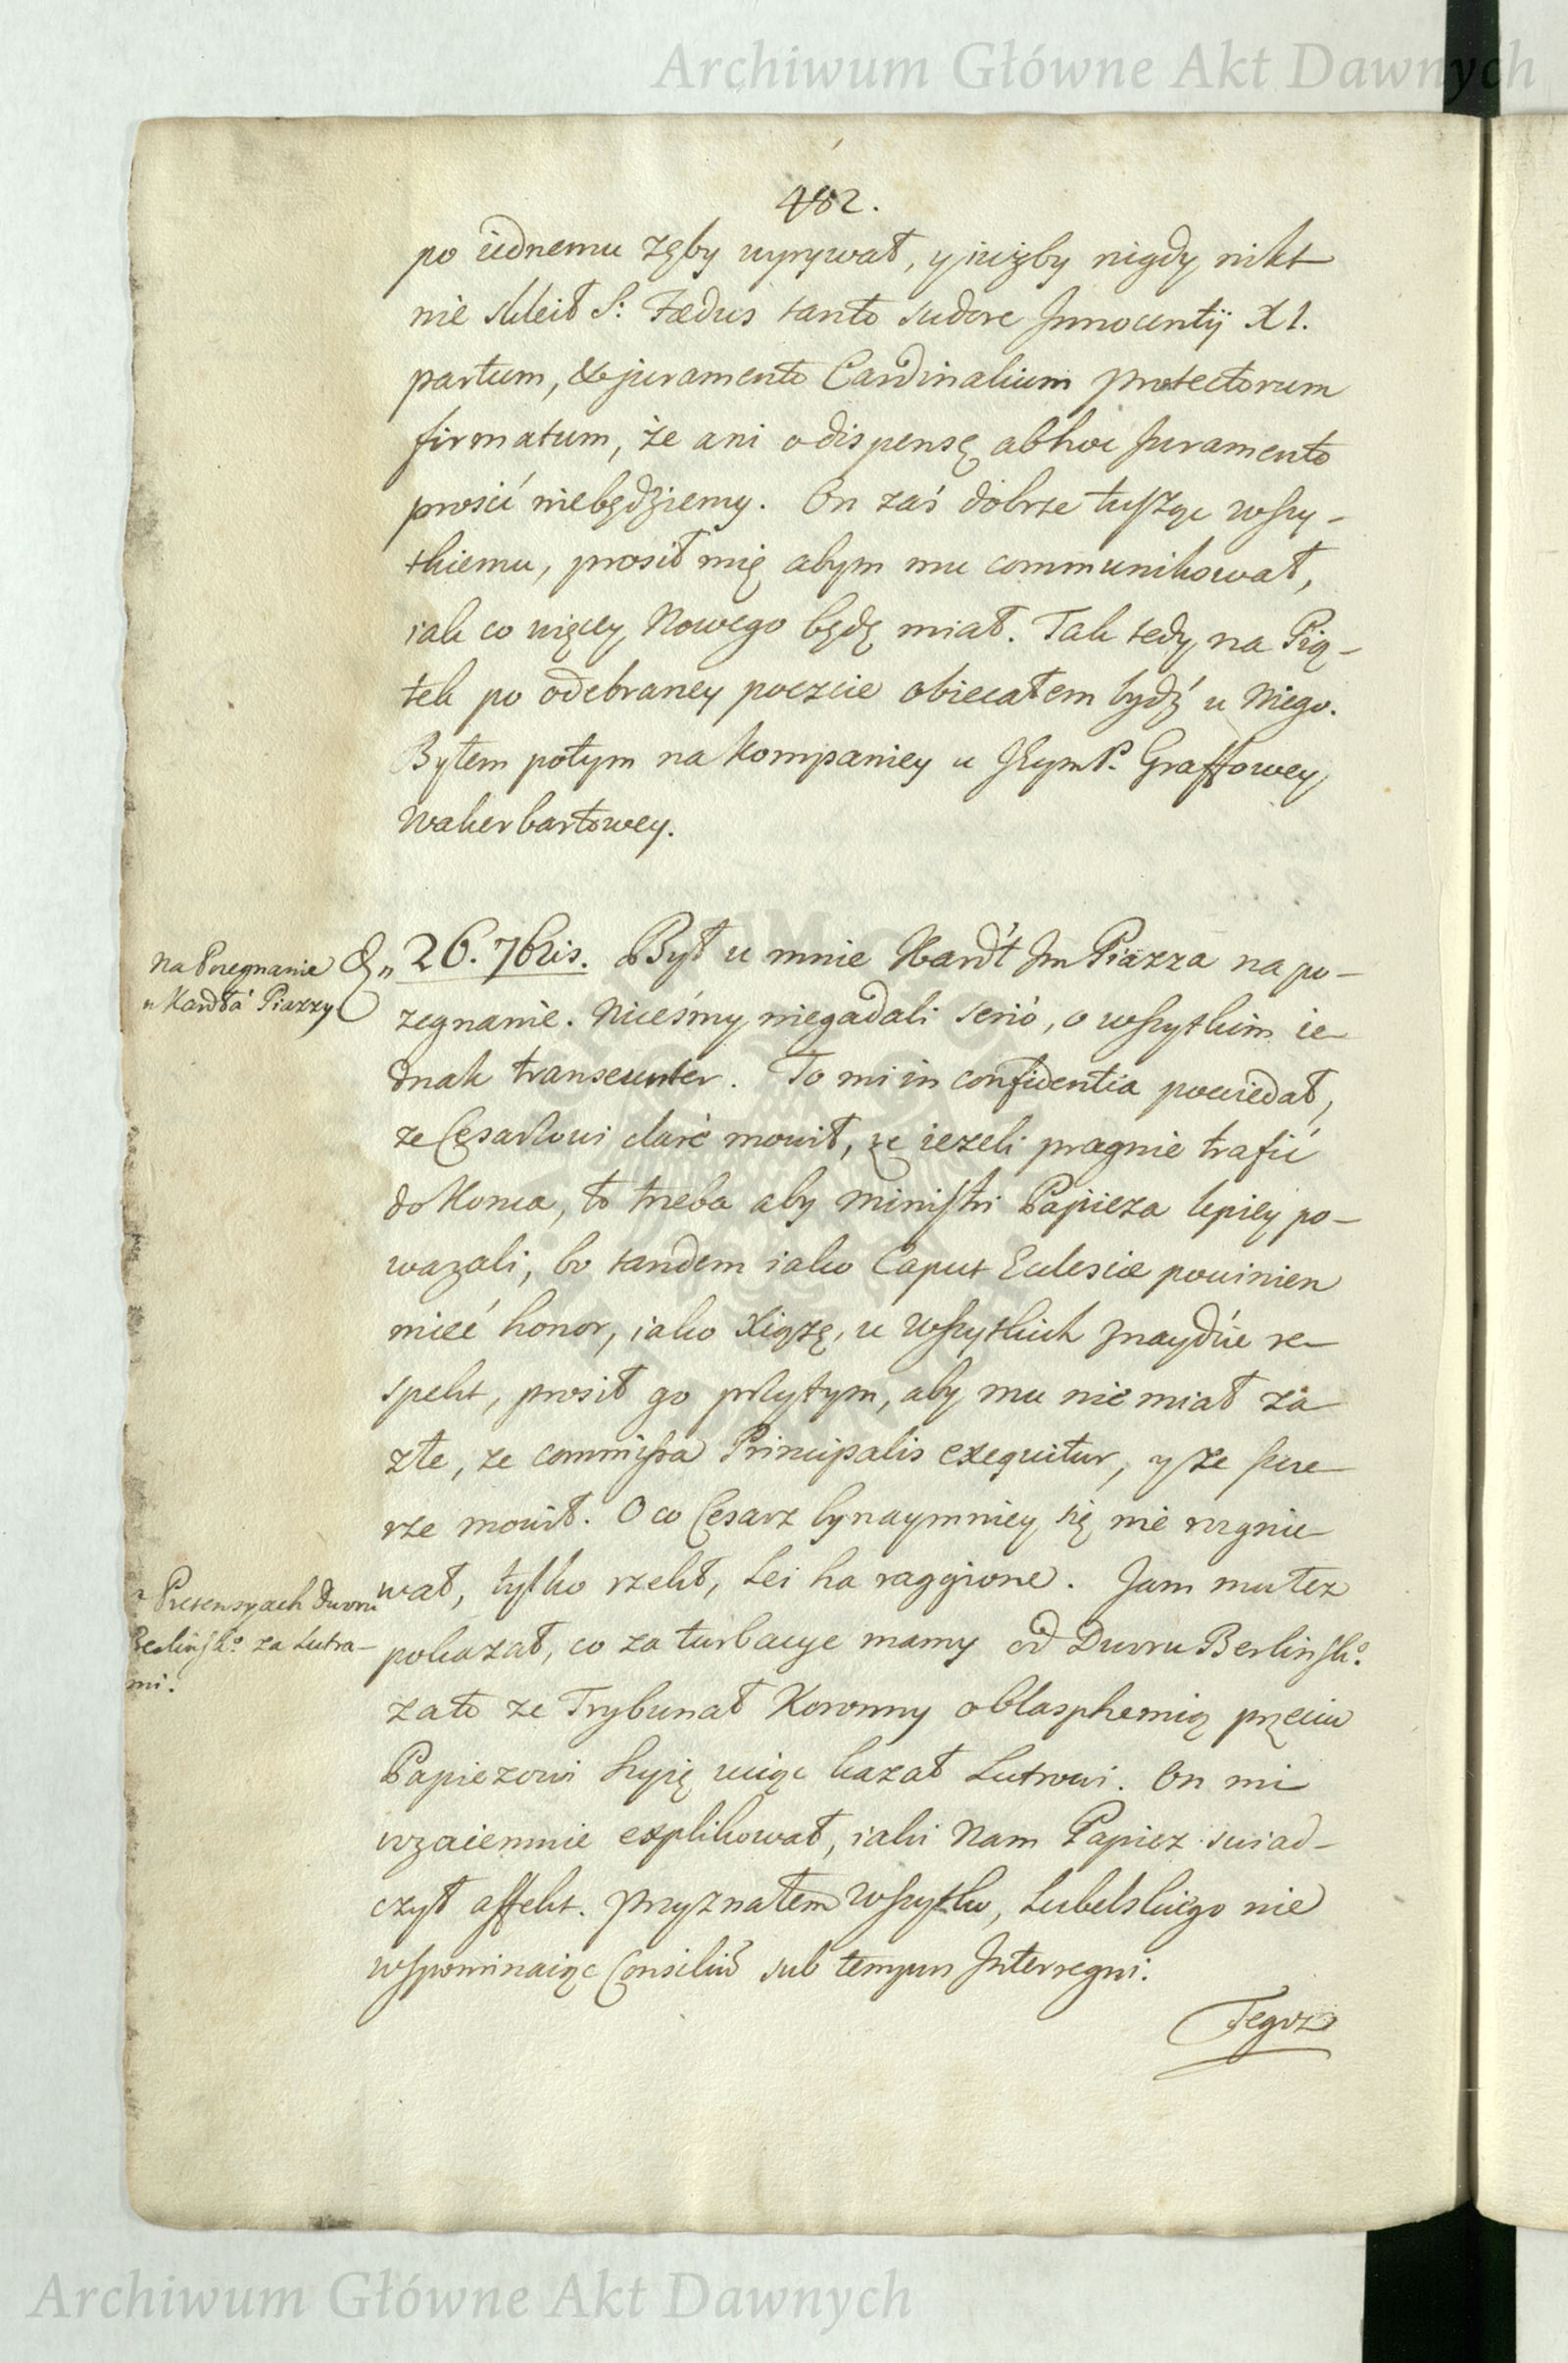 Archiwum Główne Akt Dawnych
482.
po iednemu zęby wyrywał, y iużby nigdy nikt
nie skleił S: Fædus tanto sudore Innocentij XI.
partum, & juramento Cardinalium protectorum
firmatum, że ani o dispensę ab hoc Juramento
prosić niebędziemy. On zaś dobrze tusząc wszy-
tkiemu, prosił mię abym mu communikował,
iak co więcey Nowego będę miał. Tak tedy na Pią-
tek po odebraney poczcie obiecałem bydź u Niego.
Byłem potym na kompaniey u JEymP. Graffowey
Wakerbartowey.
Na Pozegnanie
u Kardła Piazzy
D. 26. 7bris. Był u mnie Kardł Jm Piazza na po-
zegnanie. Niceśmy niegadali serió, o wszytkim ie-
dnak transeunter. To mi in confidentia powiedał,
ze Cesarzowi clarè mowił, ze iezeli pragnie trafić
do Konca, to trzeba aby Ministri Papieza lepiey po-
wazali, bo tandem iako Caput Eclesiæ powinien
mieć honor, iako Xiązę, u wszytkich znaydzie re-
spekt, prosił go przytym, aby mu nie miał za
złe, ze commissa Principalis exequitur, y ze szcze-
rze mowił. O co Cesarz bynaymniey się nie rozgnie-
wał, tylko rzekł, Lei ha raggione. Jam mu tez
o Pretensyach Dworu
Berlińsk.o za Lutra-
mi.
pokazał, co za turbacye mamy od Dworu Berlinsk.o
zato ze Trybunał Koronny o blasphemią przeciw
Papiezowi szyię uciąc kazał Lutrowi. On mi
wzaiemnie explikował, iaki Nam Papiez swiad-
czył affekt. przyznałem wszytko, Lubelskiego nie
wspominaiąc Consiliū sub tempus Interregni.
Tegoz
Archiwum Główne Akt Dawnych